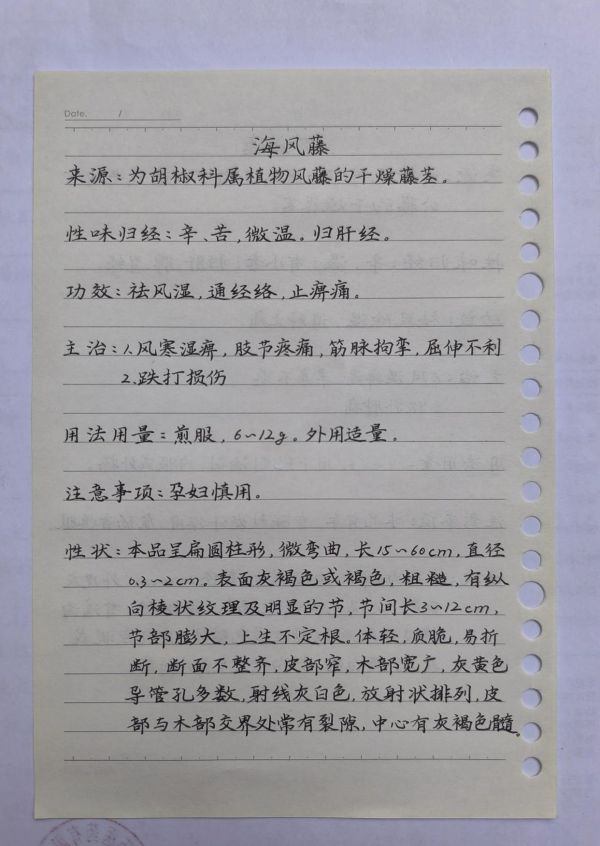 Date. /
海风藤
来源:为胡椒科属植物风藤的干燥藤茎。
性味归经:辛、苦,微温。归肝经。
功效:祛风湿,通经络,止痹痛。
主治:1.风寒湿痹,肢节疼痛,筋脉拘挛,屈伸不利
2.跌打损伤
用法用量:煎服,6~12g。外用适量。
注意事项:孕妇慎用。
性状:本品呈扁圆柱形,微弯曲,长15~60cm,直径
0.3~2cm。表面灰褐色或褐色,粗糙,有纵
向棱状纹理及明显的节,节间长3~12cm,
节部膨大,上生不定根。体轻,质脆,易折
断,断面不整齐,皮部窄,木部宽广,灰黄色
导管孔多数,射线灰白色,放射状排列,皮
部与木部交界处常有裂隙,中心有灰褐色髓。